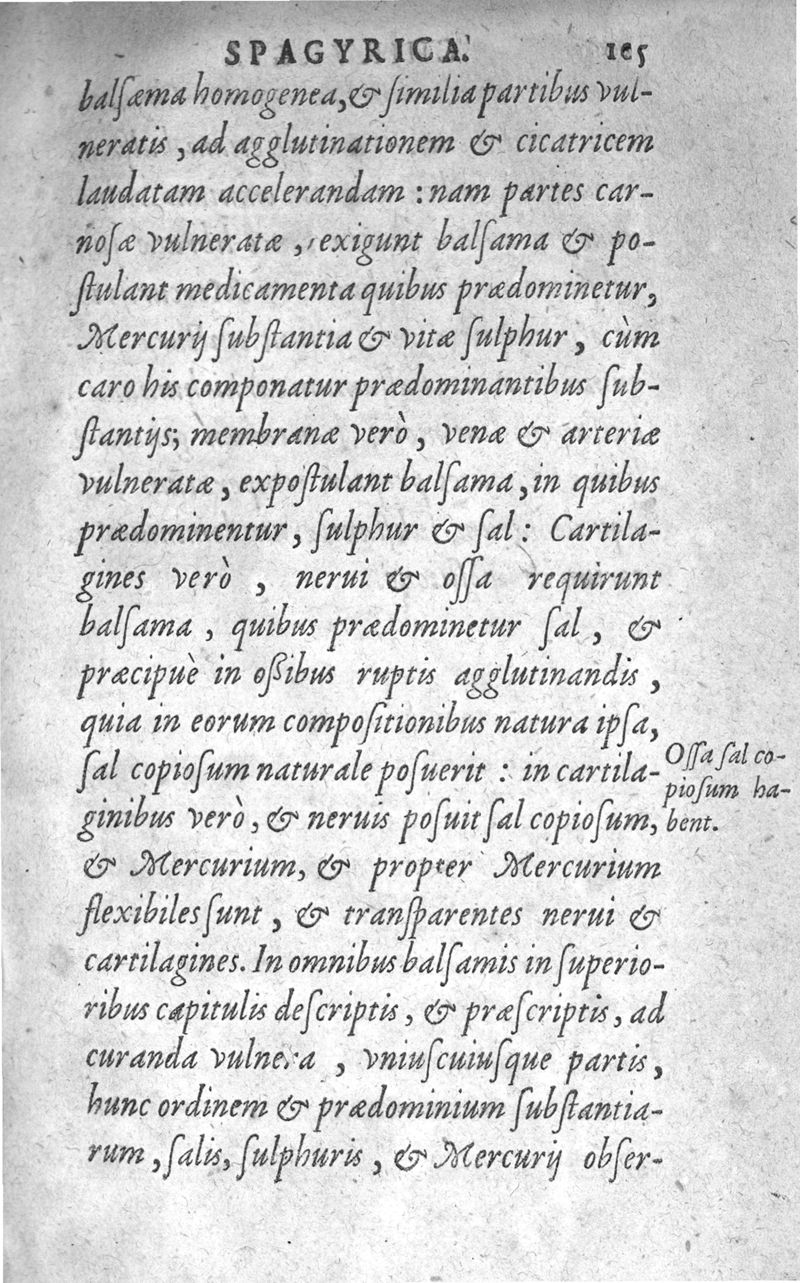 SPAGYRICA. 105
balſæma homogenea, & ſimilia partibus vul-
neratis, ad agglutinationem & cicatricem
laudatam accelerandam : nam partes car-
noſæ vulneratæ, exigunt balſama & po-
ſtulant medicamenta quibus prædominetur,
Mercurij ſubſtantia & vitæ ſulphur, cùm
caro his componatur prædominantibus ſub-
ſtantijs; membranæ verò, venæ & arteriæ
vulneratæ, expoſtulant balſama, in quibus
prædominentur, ſulphur & ſal : Cartila-
gines verò, nerui & oſſa requirunt
balſama, quibus prædominetur ſal, &
præcipuè in oſſibus ruptis agglutinandis,
quia in eorum compoſitionibus natura ipſa,
ſal copioſum naturale poſuerit : in cartila-
ginibus verò, & neruis poſuit ſal copioſum,
& Mercurium, & propter Mercurium
flexibiles ſunt, & tranſparentes nerui &
cartilagines. In omnibus balſamis in ſuperio-
ribus capitulis deſcriptis, & præſcriptis, ad
curanda vulnera, vniuſcuiuſque partis,
hunc ordinem & prædominium ſubſtantia-
rum, ſalis, ſulphuris, & Mercurij obſer-
Oſſa ſal co-
pioſum ha-
bent.